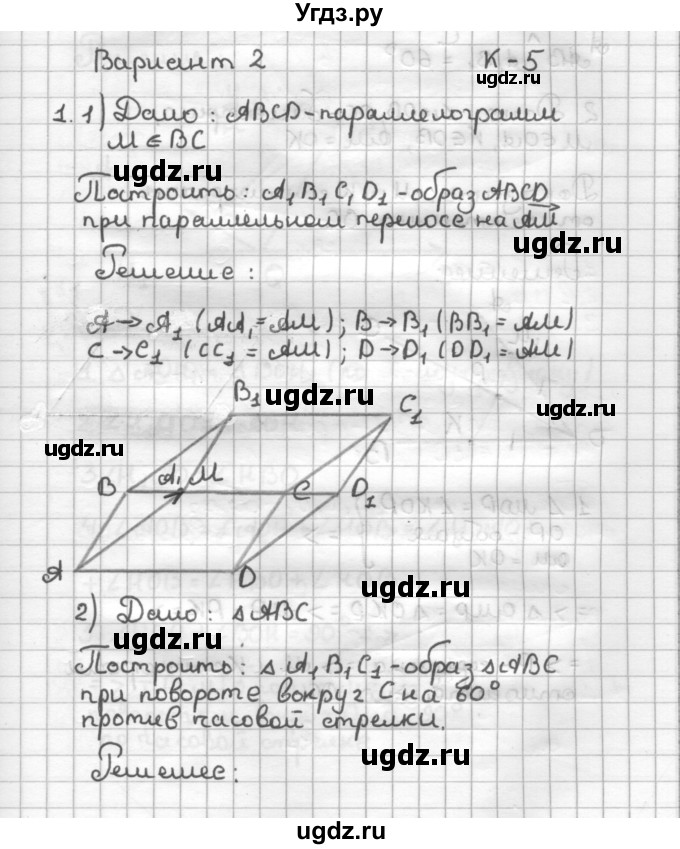 Угдз.ру
Вариант 2 К-5
ugdz.ru
1. 1) Дано: ABCD-параллелограмм
M ∈ BC
ugdz.ru
Построить: A₁B₁C₁D₁-образ ABCD
при параллельном переносе на AM
ugdz.ru
Решение:
A→A₁ (AA₁=AM); B→B₁ (BB₁=AM)
C→C₁ (CC₁=AM); D→D₁ (DD₁=AM)
ugdz.ru
B₁ ugdz.ru C₁ ugdz.ru
ugdz.ru
B A₁ M C D₁
A D
2) Дано: △ABC
ugdz.ru
Построить: △A₁B₁C₁-образ △ABC
при повороте вокруг C на 60°
против часовой стрелки.
ugdz.ru
Решение:
ugdz.ru
ugdz.ru